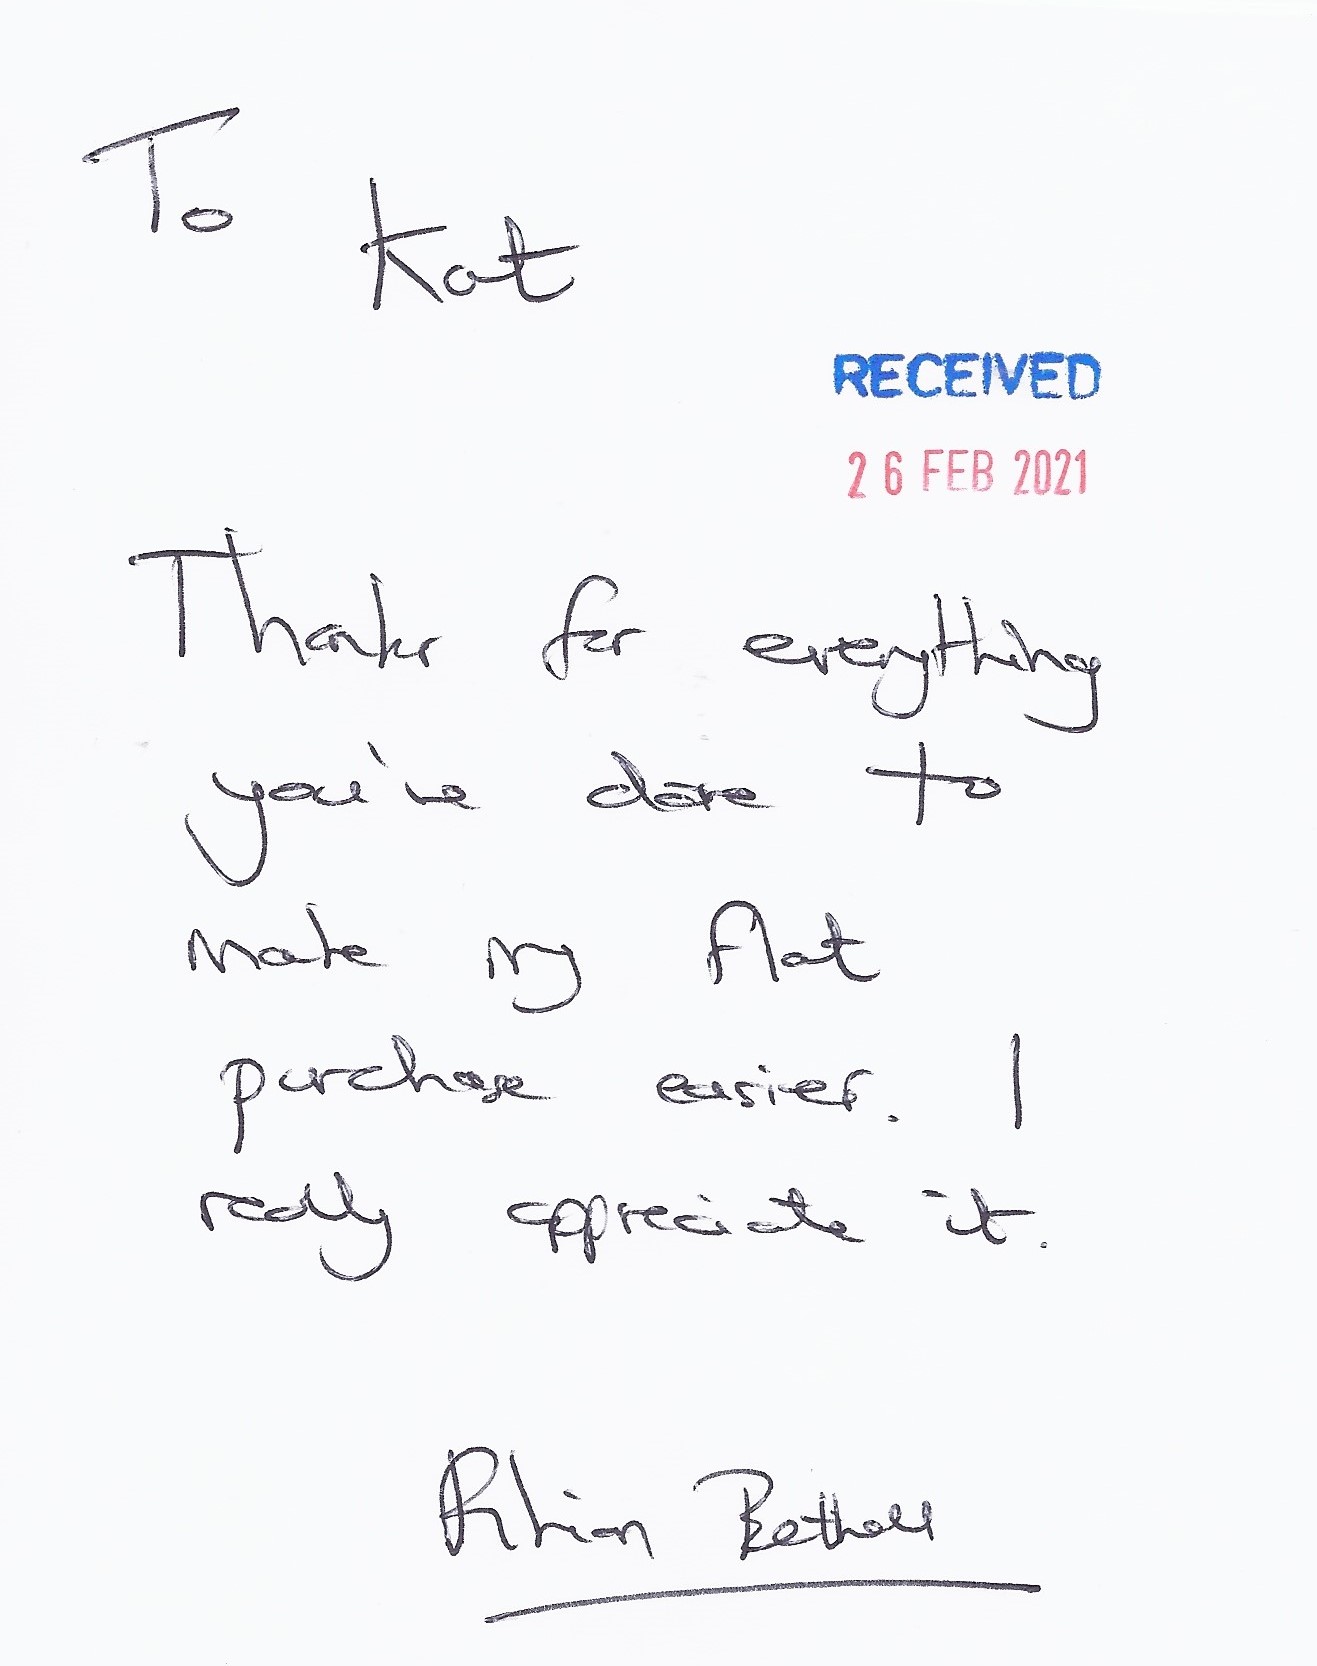 To
Kat
RECEIVED
26 FEB 2021
Thanks for everything
you've done to
make my flat
purchase easier. I
really appreciate it.
Rhian Bethell